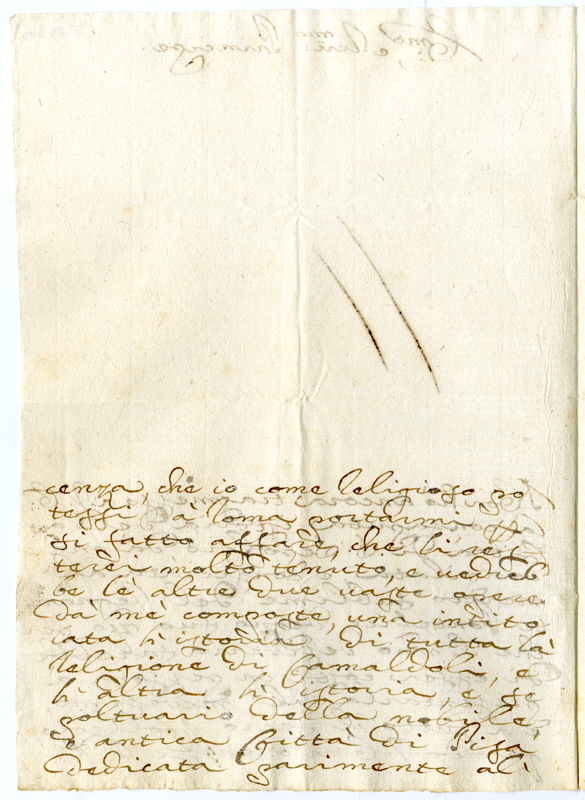 cenza, che io come Religioso po
tessi à Roma portarmi p
si fatto affare, che li res
terei molto tenuto, e vedreb
be lè altre due vaste opere
dà mè composte, una intito
lata historia di tutta là
Religione di Camaldoli, e
l'altra historia, e se
poltuario della nobile,
e antica Città di Pisa
dedicata parimente al